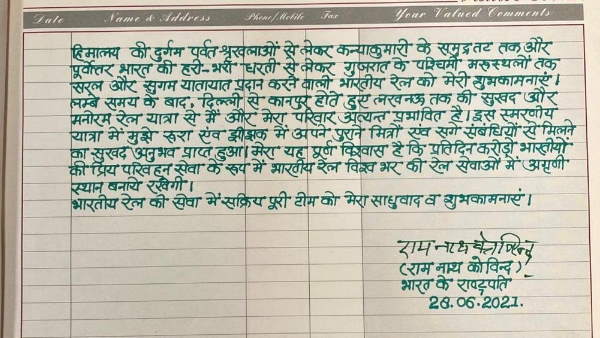 Date Name & Address Phone/Mobile Fax Your Valued Comments
हिमालय की दुर्गम पर्वत-श्रृंखलाओं से लेकर कन्याकुमारी के समुद्रतट तक और
पूर्वोत्तर भारत की हरी-भरी धरती से लेकर गुजरात के पश्चिमी मरूस्थलों तक
सरल और सुगम यातायात प्रदान करने वाली भारतीय रेल को मेरी शुभकामनाएं।
लम्बे समय के बाद, दिल्ली से कानपुर होते हुए लखनऊ तक की सुखद और
मनोरम रेल यात्रा से मैं और मेरा परिवार अत्यन्त प्रभावित है। इस स्मरणीय
यात्रा में मुझे रूरा एंव झींझक में अपने पुराने मित्रों एंव सगे संबंधियों से मिलने
का सुखद अनुभव प्राप्त हुआ। मेरा यह पूर्ण विश्वास है कि प्रतिदिन करोड़ों भारतीयों
की प्रिय परिवहन सेवा के रूप में भारतीय रेल विश्व भर की रेल सेवाओं में अग्रणी
स्थान बनाये रखेगी।
भारतीय रेल की सेवा में सक्रिय पूरी टीम को मेरा साधुवाद व शुभकामनाएं।
राम नाथ कोविन्द
(राम नाथ कोविन्द)
भारत के राष्ट्रपति
28.06.2021.